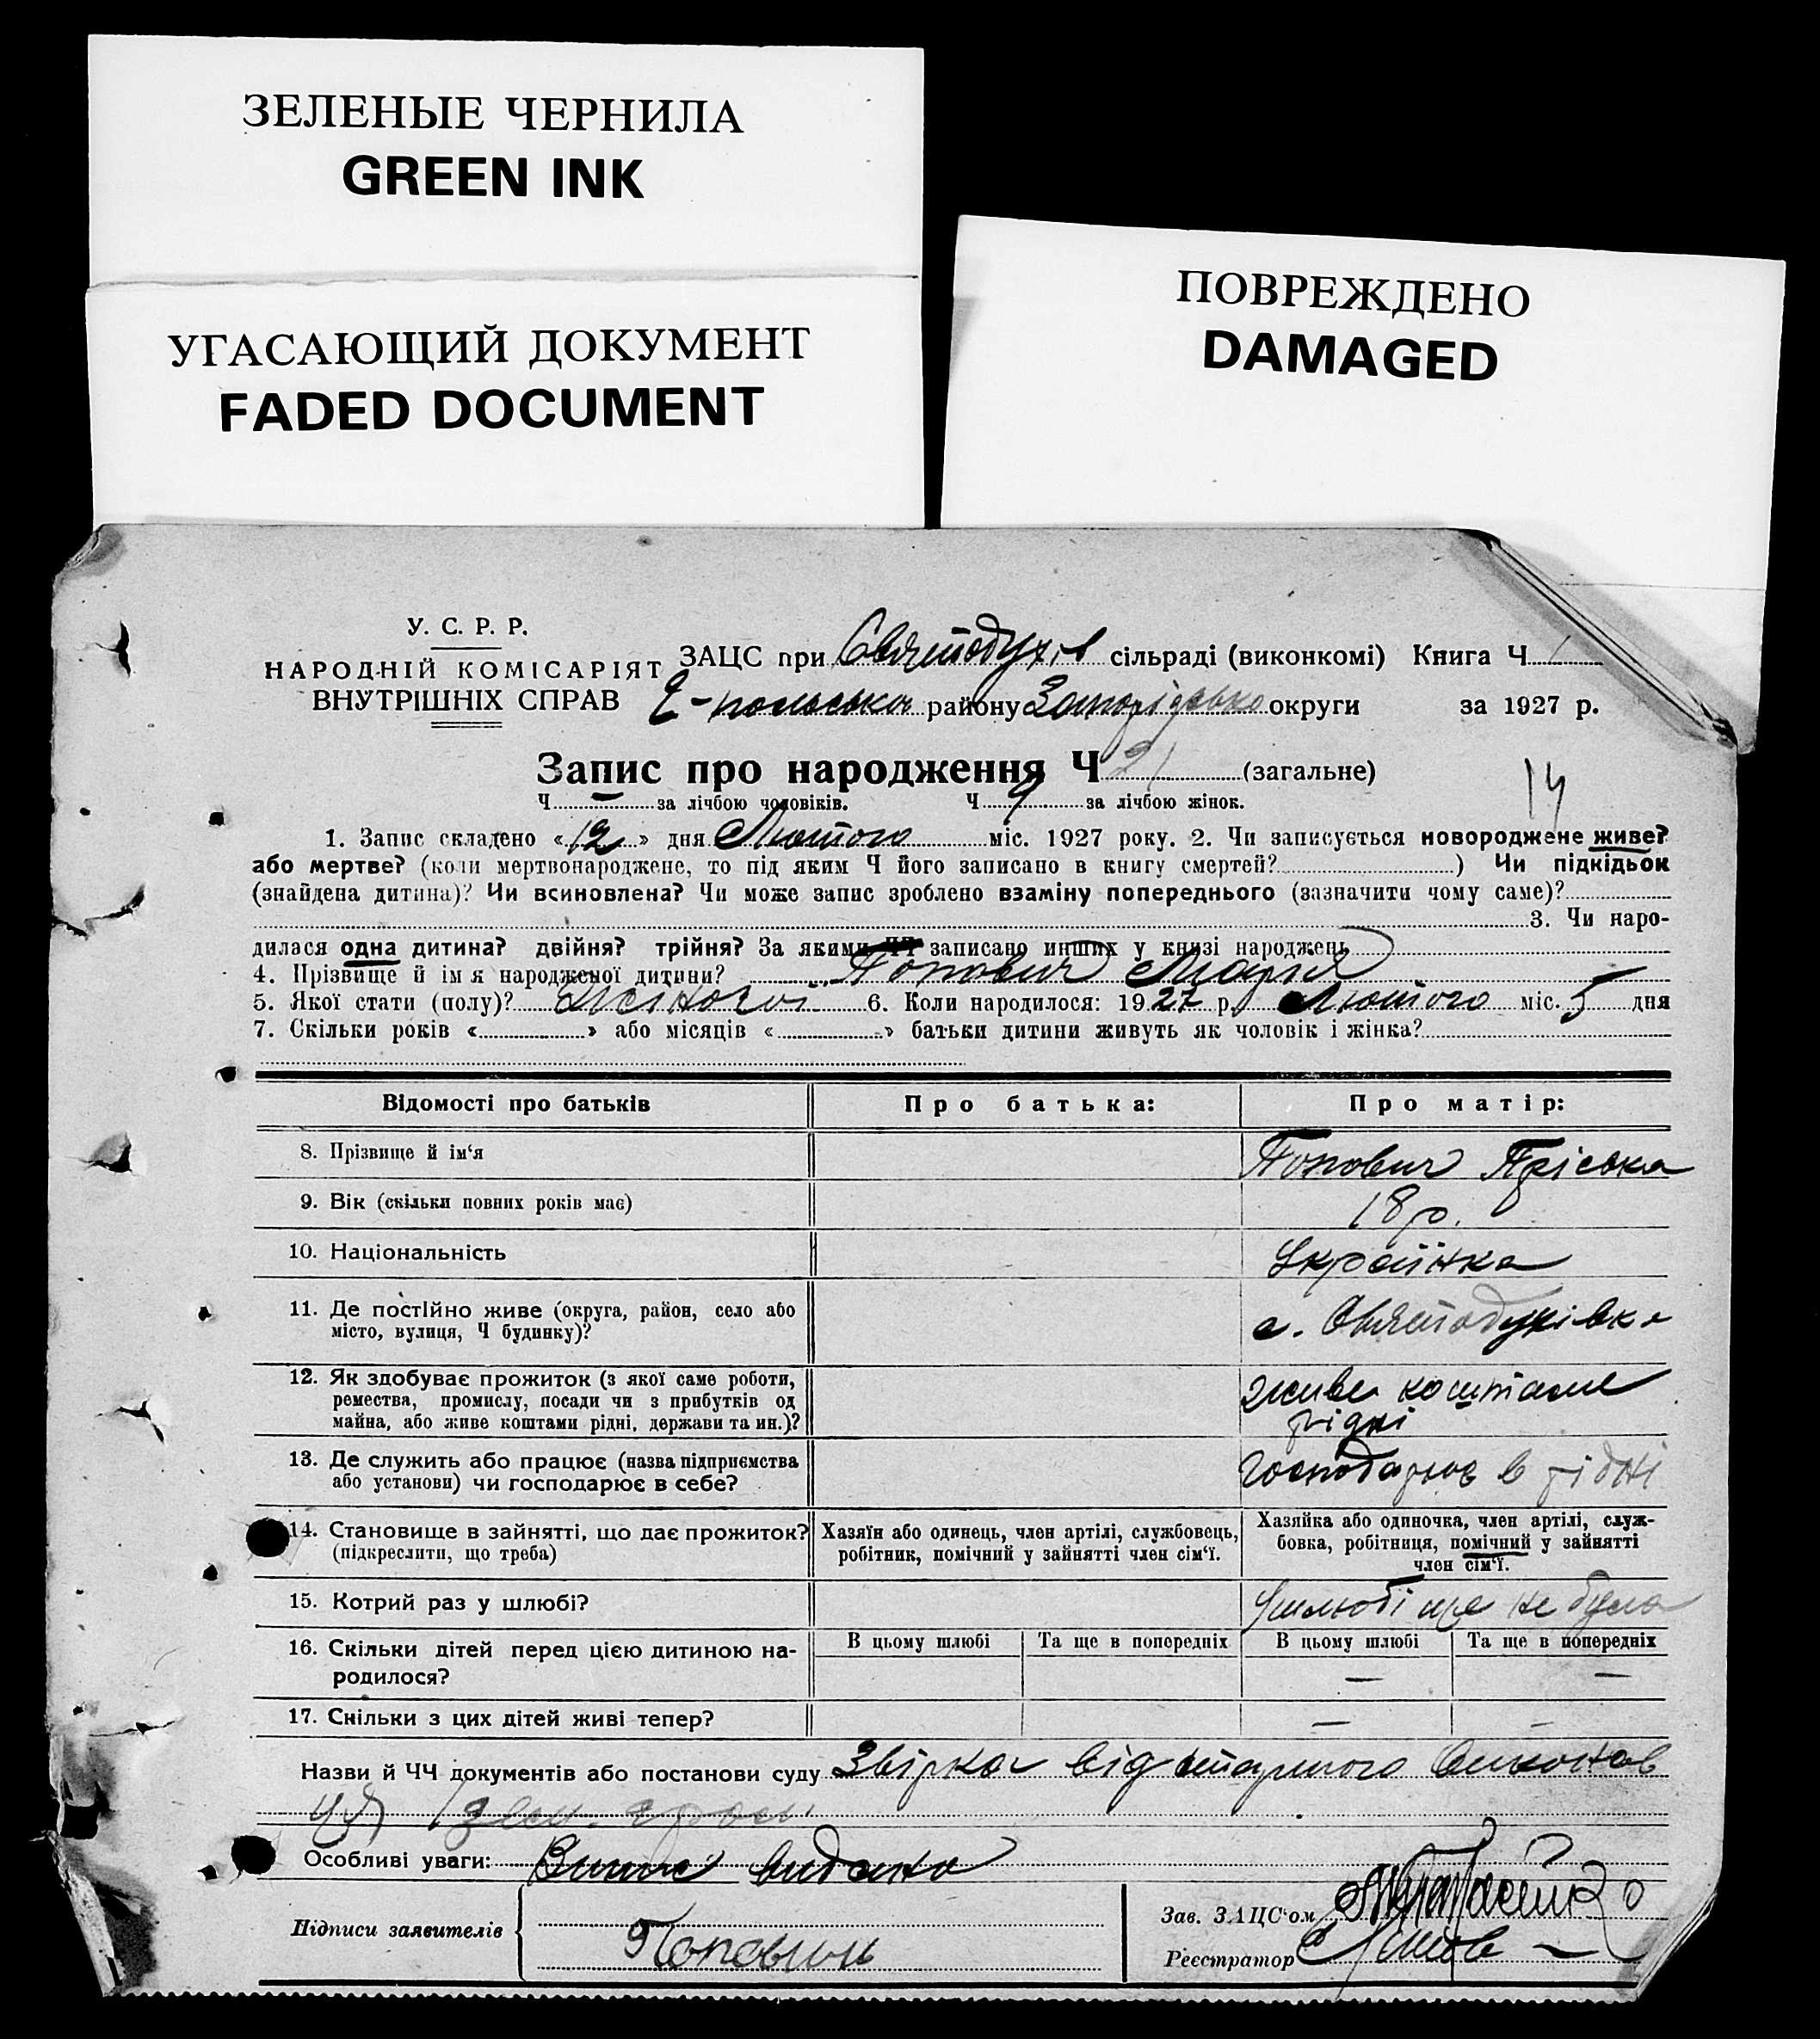 ЗЕЛЕНЫЕ ЧЕРНИЛА
GREEN INK
УГАСАЮЩИЙ ДОКУМЕНТ
FADED DOCUMENT
ПОВРЕЖДЕНО
DAMAGED
У. С. Р. Р.
НАРОДНІЙ КОМІСАРІЯТ
ВНУТРІШНІХ СПРАВ
ЗАЦС при Святодухів сільраді (виконкомі) Книга Ч
району Запорізько округи за 1927 р.
Запис про народження Ч 21 (загальне)
14
Ч — за лічбою чоловіків. Ч 9 за лічбою жінок.
1. Запис складено «12» дня Лютого міс. 1927 року. 2. Чи записується новороджене живе?
або мертве? (коли мертвонароджене, то під яким Ч його записано в книгу смертей? ) Чи підкідьок
(знайдена дитина)? Чи всиновлена? Чи може запис зроблено взаміну попереднього (зазначити чому саме)?
3. Чи наро-
дилася одна дитина? двійня? трійня? За якими ЧЧ записано инших у книзі народжень
4. Прізвище й ім я народженої дитини? Попович Марія
5. Якої стати (полу)? Жіночої 6. Коли народилося: 1927 р. Лютого міс. 5 дня
7. Скільки років « » або місяців « » батьки дитини живуть як чоловік і жінка?
Відомості про батьків Про батька: Про матір:
8. Прізвище й ім‘я Попович Пріська
9. Вік (скільки повних років має) 18 р.
10. Національність Українка
11. Де постійно живе (округа, район, село або с. Святодухівка
місто, вулиця, Ч будинку)?
12. Як здобуває прожиток (з якої саме роботи, живе коштами
ремества, промислу, посади чи з прибутків од рідні
майна, або живе коштами рідні, держави та ин.)?
13. Де служить або працює (назва підприємства Господарює в рідні
або установи) чи господарює в себе?
14. Становище в зайнятті, що дає прожиток? Хазяїн або одинець, член артілі, службовець, Хазяйка або одиночка, член артілі, служ-
(підкреслити, що треба) робітник, помічний у зайнятті член сім‘ї. бовка, робітниця, помічний у зайнятті
член сім‘ї.
15. Котрий раз у шлюбі? У шлюбі ще не була
16. Скільки дітей перед цією дитиною на- В цьому шлюбі Та ще в попередніх В цьому шлюбі Та ще в попередніх
родилося? — —
17. Скільки з цих дітей живі тепер? —
Назви й ЧЧ документів або постанови суду Звірка від
Особливі уваги: Випис видано
Підписи заявителів Попович
Зав. ЗАЦС‘ом
Реєстратор